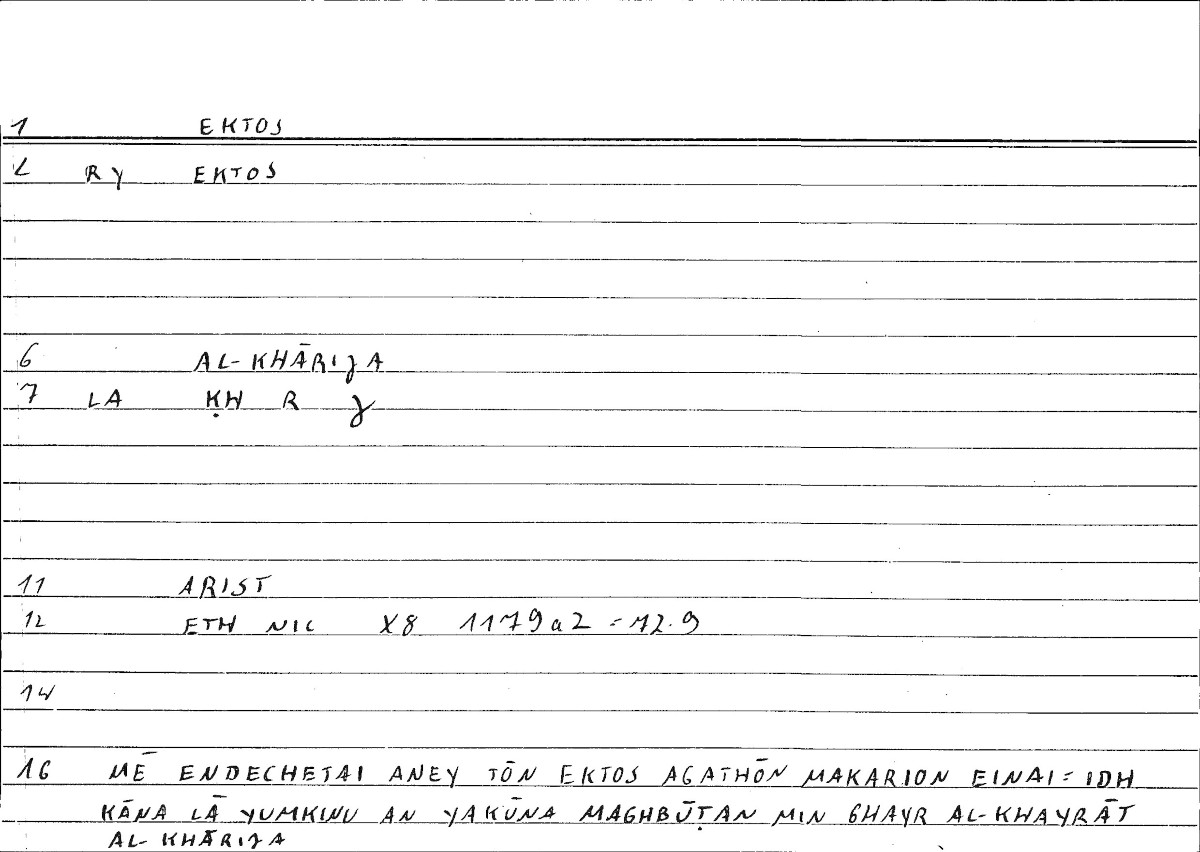 1 EKTOS
2 RY EKTOS
6 AL-KHĀRIJA
7 LA ḲH R J
11 ARIST
12 ETH NIC X8 1179a2 = 72.9
14
16 MĒ ENDECHETAI ANEY TŌN EKTOS AGATHŌN MAKARION EINAI = IDH
KĀNA LĀ YUMKINU AN YAKŪNA MAGHBŪṬAN MIN GHAYR AL-KHAYRĀT
AL-KHĀRIJA